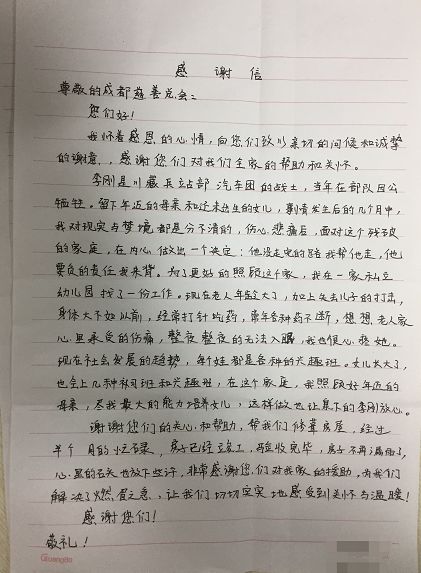 感 谢 信
尊敬的成都慈善总会:
您们好!
我怀着感恩的心情,向您们致以亲切的问候和诚挚
的谢意,感谢您们对我们全家的帮助和关怀。
李刚是川藏兵站部汽车团的战士,当年在部队因公
牺牲。留下年迈的母亲和还未出生的女儿,事情发生后的几个月中,
我对现实与梦境都是分不清的,伤心悲痛后,面对这个残破
的家庭,在内心做出一个决定:他没走完的路我帮他走,他
要负的责任我来背。为了更好的照顾这个家,我在一家私立
幼儿园找了一份工作。现在老人年龄大了,加上失去儿子的打击,
身体大不如以前,经常打针吃药,常年各种药不断,想想老人家
心里承受的伤痛,整夜整夜的无法入眠,我也很心疼她。
现在社会发展的趋势,每个娃都是各种的兴趣班。女儿长大了,
也会上几种补习班和兴趣班,在这个家庭,我照顾好年迈的
母亲,尽我最大的能力培养女儿,这样做也让泉下的李刚放心。
谢谢您们的关心和帮助,帮我们修葺房屋,经过
半个月的忙碌,房子已经竣工,验收完毕,房子不再漏雨了,
心里的石头也放下些许,非常感谢您们对我家的援助,为我们
解决了燃眉之急,让我们切切实实地感受到关怀与温暖!
感谢您们!
敬礼!
GuangBo